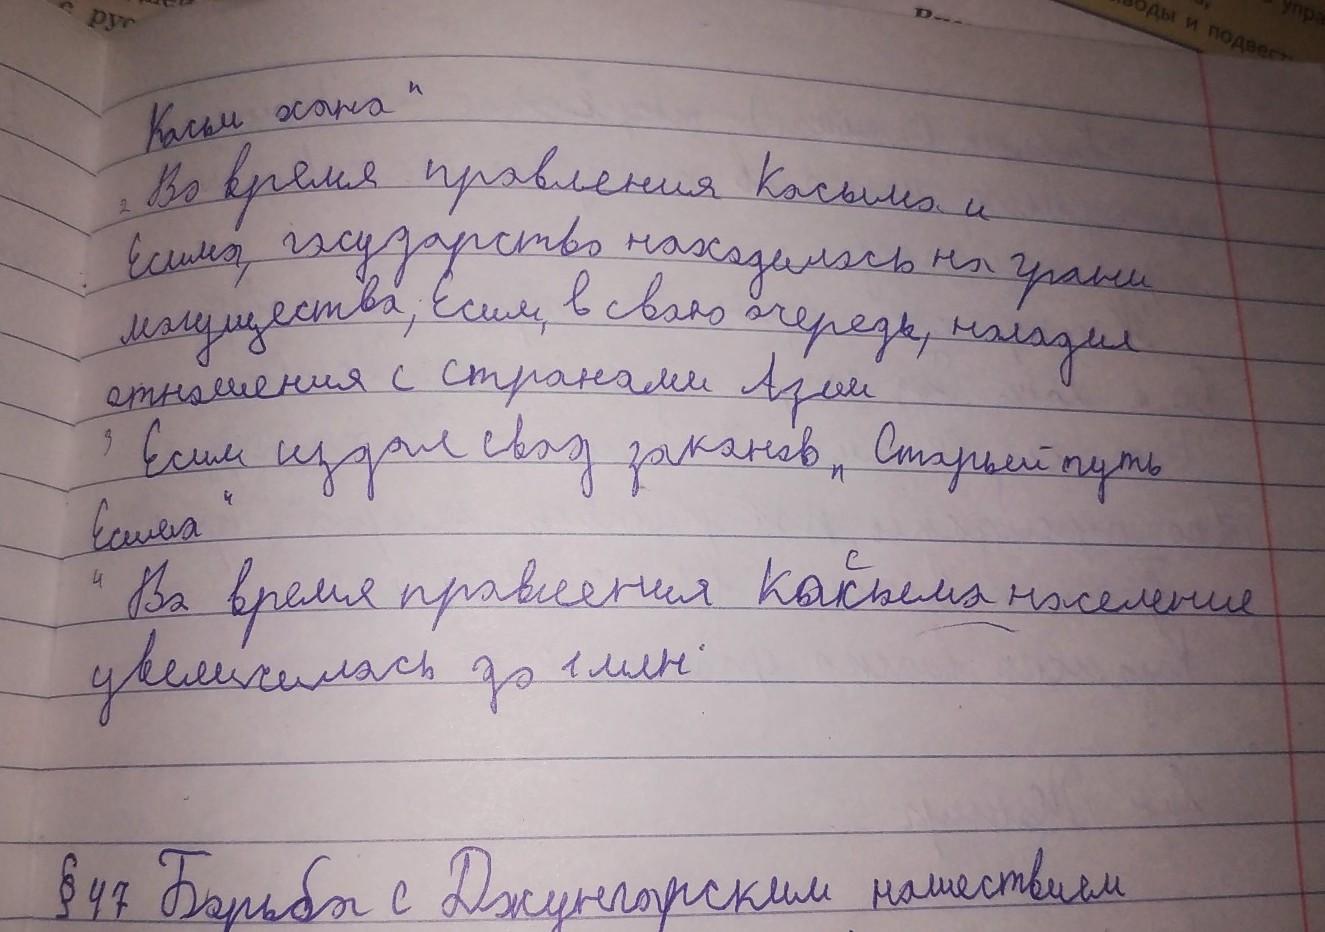 с рус
воды и подвест
упра
Касым хана"
2 Во время правления Касыма и
Есима, государство находилось на грани
могущества, Есим, в свою очередь, наладил
отношения с странами Азии
3 Есим издал свод законов „Старый путь
Есима"
4 Во время правления Касыма население
увеличилось до 1 млн.
§ 47 Борьба с Джунгарским нашествием